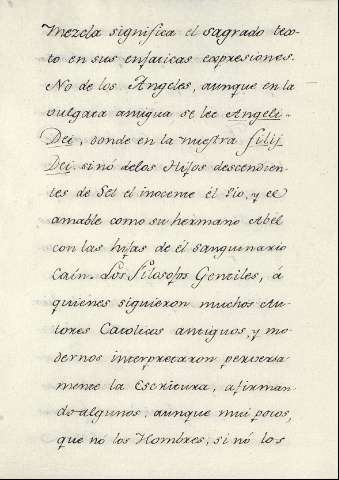 mezcla significa el sagrado tex-
to en sus enfaticas expresiones.
No de los Angeles, aunque en la
vulgata antigua se lee Angeli-
Dei, donde en la nuestra filij
Dei. sinó delos Hijos descendien-
tes de Set el inocente el Pio, y el
amable como su hermano Abèl
con las hijas de él sanguinario
Caín. Los Filosofos Gentiles, á
quienes siguieron muchos Au-
tores Catolicos antiguos, y mo-
dernos interpretaron perversa
mente la Escritura, afirman
do algunos, aunque mui pocos,
que nó los Hombres, si nó los